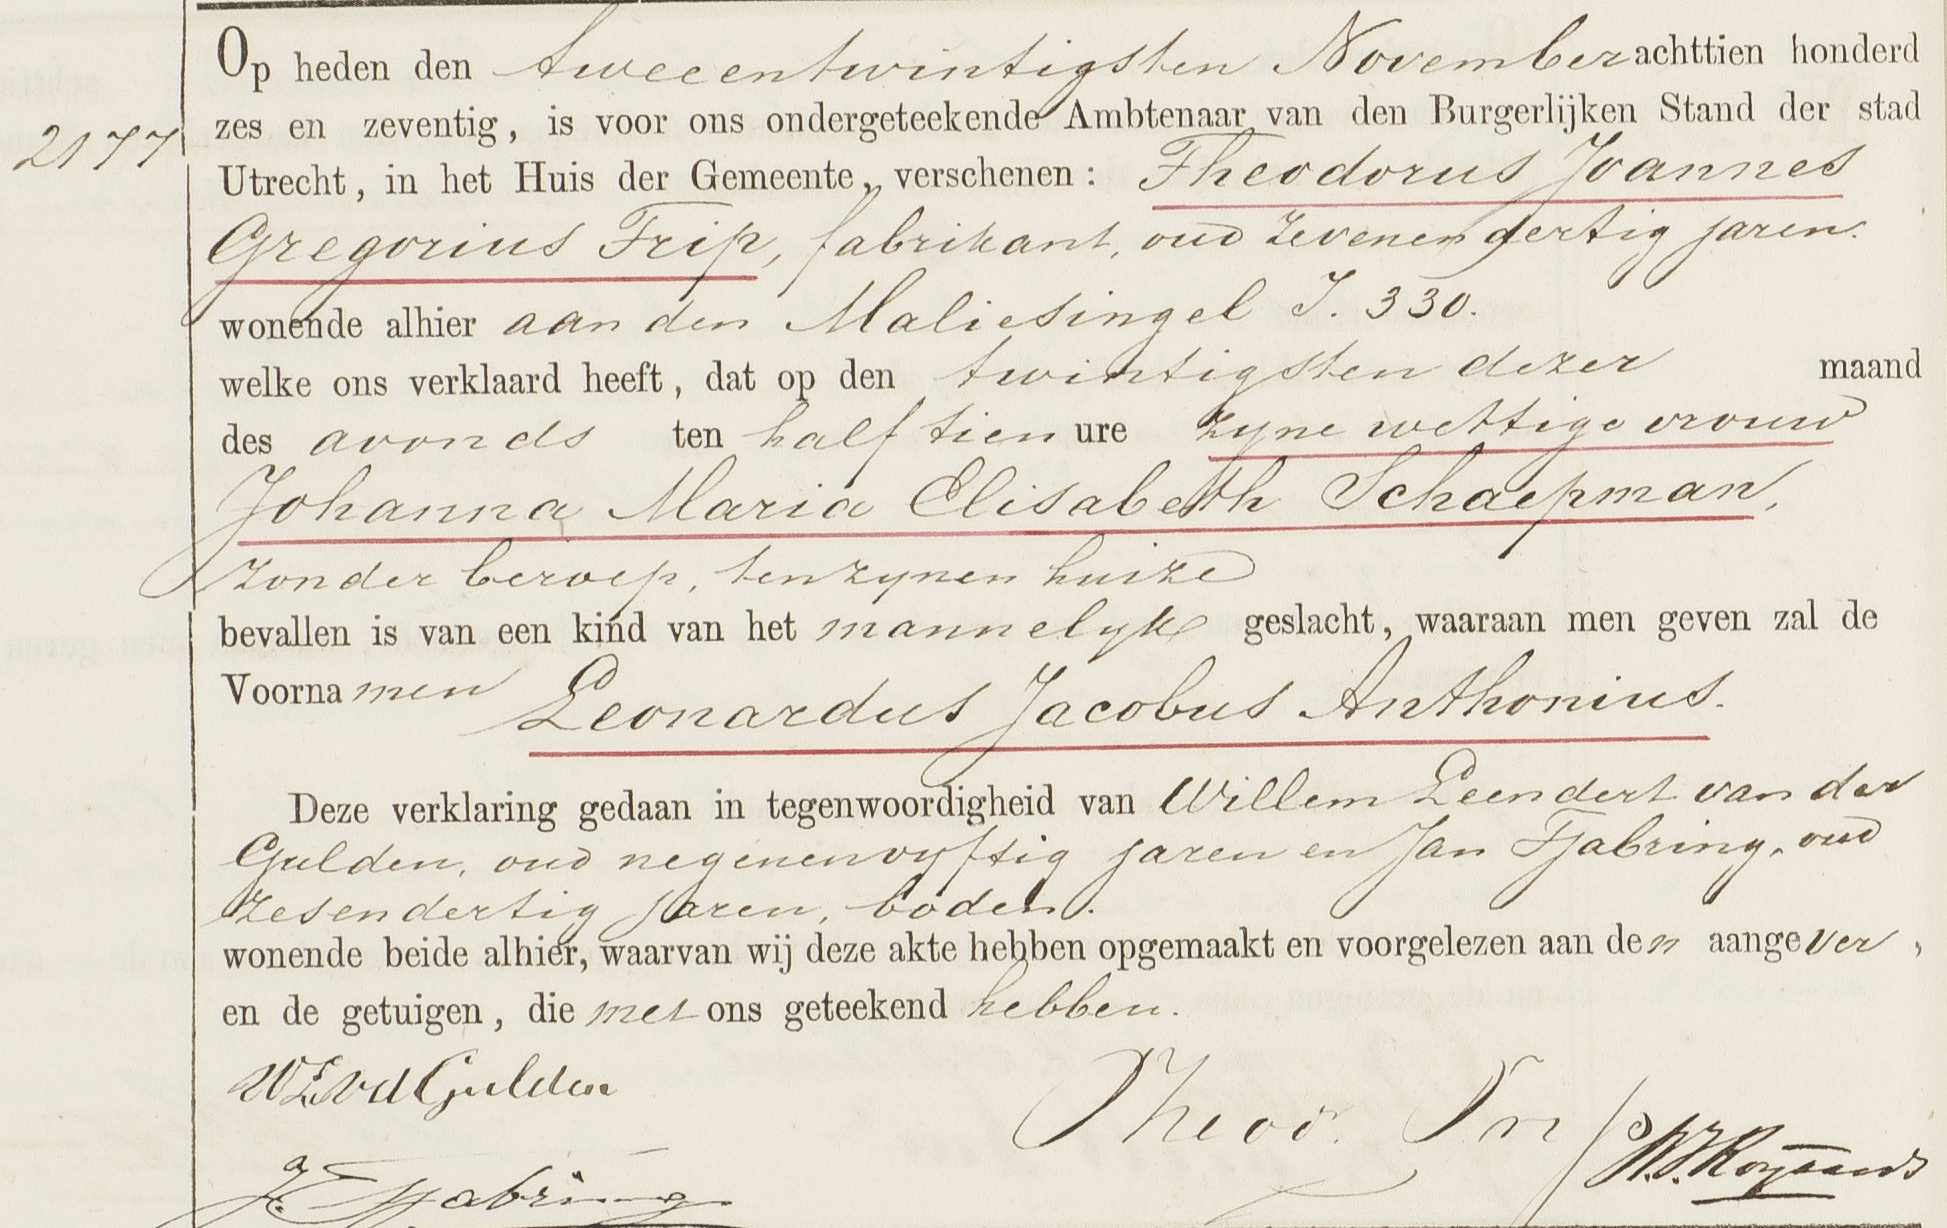 Op heden den tweeentwintigsten November achttien honderd
zes en zeventig, is voor ons ondergeteekende Ambtenaar van den Burgerlijken Stand der stad
2177
Utrecht, in het Huis der Gemeente, verschenen: Theodorus Joannes
Gregorius Trip, fabrikant, oud zevenendertig jaren.
wonende alhier aan den Maliesingel I. 330.
welke ons verklaard heeft, dat op den twintigsten dezer maand
des avonds ten half tien ure zyne wettige vrouw
Johanna Maria Elisabeth Schaepman,
zonder beroep, ten zynen huize
bevallen is van een kind van het mannelyk geslacht, waaraan men geven zal de
Voornamen Leonardus Jacobus Anthonius.
Deze verklaring gedaan in tegenwoordigheid van Willem Leendert van der
Gulden, oud negenenvyftig jaren en Jan Tjabring, oud
zesendertig jaren, boden.
wonende beide alhier, waarvan wij deze akte hebben opgemaakt en voorgelezen aan den aangever,
en de getuigen, die met ons geteekend hebben.
WLvdGulden
Theod. Trip
J. Tjabring